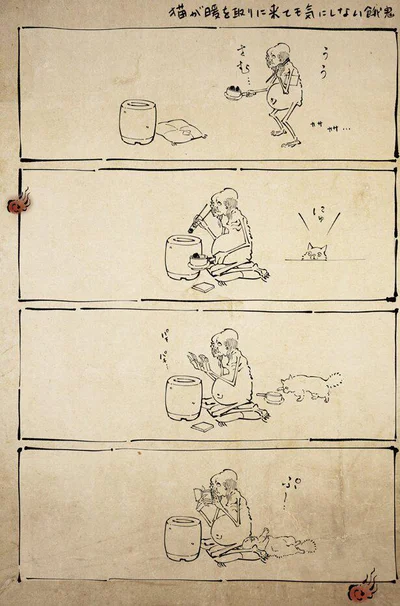 猫が暖を取りに来ても気にしない餓鬼
うう
さむ…
カサ カサ…
にゅ